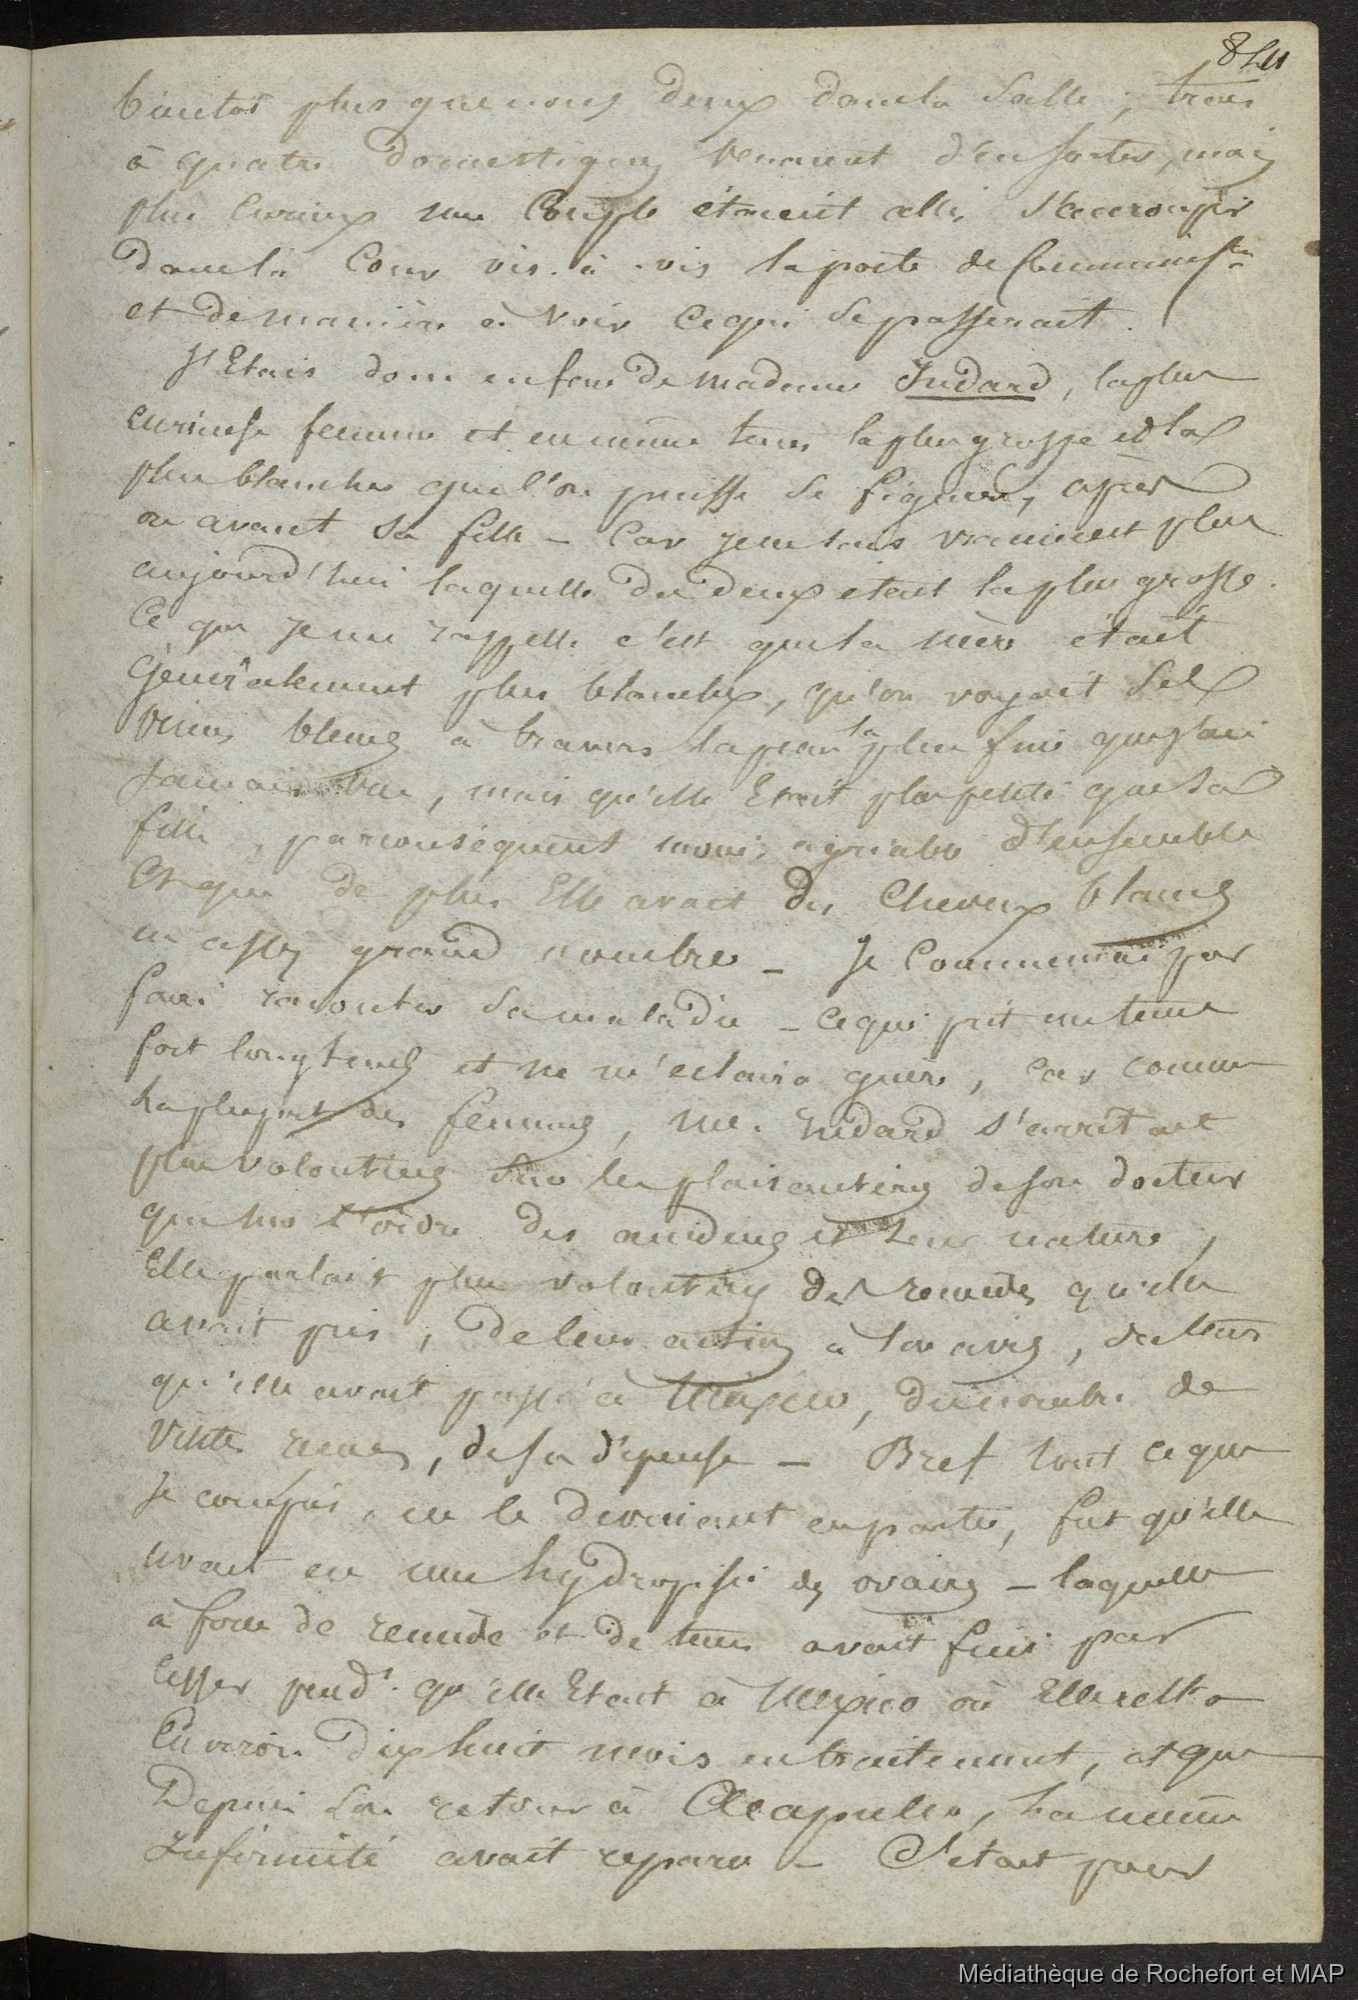 bientôt plus que nous deux dans la Salle ; trois
à quatre domestiques venaient d'en sortir, mais
plus curieux un Couple étaient allé s'accroupir
dans la Cour vis. à .vis la porte de
et de manière à voir ce qui se passerait.
J'Etais donc en face de madame Indard, la plus
curieuse femme et en même tems la plus grosse et la
plus blanche que l'on puisse se figurer, après
ou avant sa fille – Car je ne sais vraiment plus
aujourd'hui laquelle des deux était la plus grosse.
Ce que je me rappelle c'est que la mère était
Généralement plus blanche, qu'on voyait ses
veines bleues à travers la peau la plus fine que j'aie
jamais vue, mais qu'elle Etait plus petite que sa
fille, par conséquent moins agréable d'ensemble
Et que de plus Elle avait des Cheveux blancs
en assez grand nombre – Je Commençai par
faire raconter sa maladie – ce qui prit un tems
fort longtems et ne m'éclaira guère, car comme
la plupart des femmes, me. Indard s'arrêtait
plus volontiers sur les plaisanteries de son docteur
que sur l'ordre des accidens et leur nature,
Elle parlait plus volontiers des remèdes qu'elle
avait pris, de leur action à tous, du tems
qu'elle avait passé à Mexico, du nombre de
visites reçues, de sa dépense – Bref tout ce que
Je compris, en le devinant en partie, fut qu'elle
avait eu une hydropisie des ovaires – laquelle
à force de remède et de tems avait fini par
cesser pend.t qu'elle Etait à Mexico où Elle resta
Environ dix huit mois en traitement, et que
Depuis son retour à Acapulco, la même
Infirmité avait reparu – C'était pour
Médiathèque de Rochefort et MAP